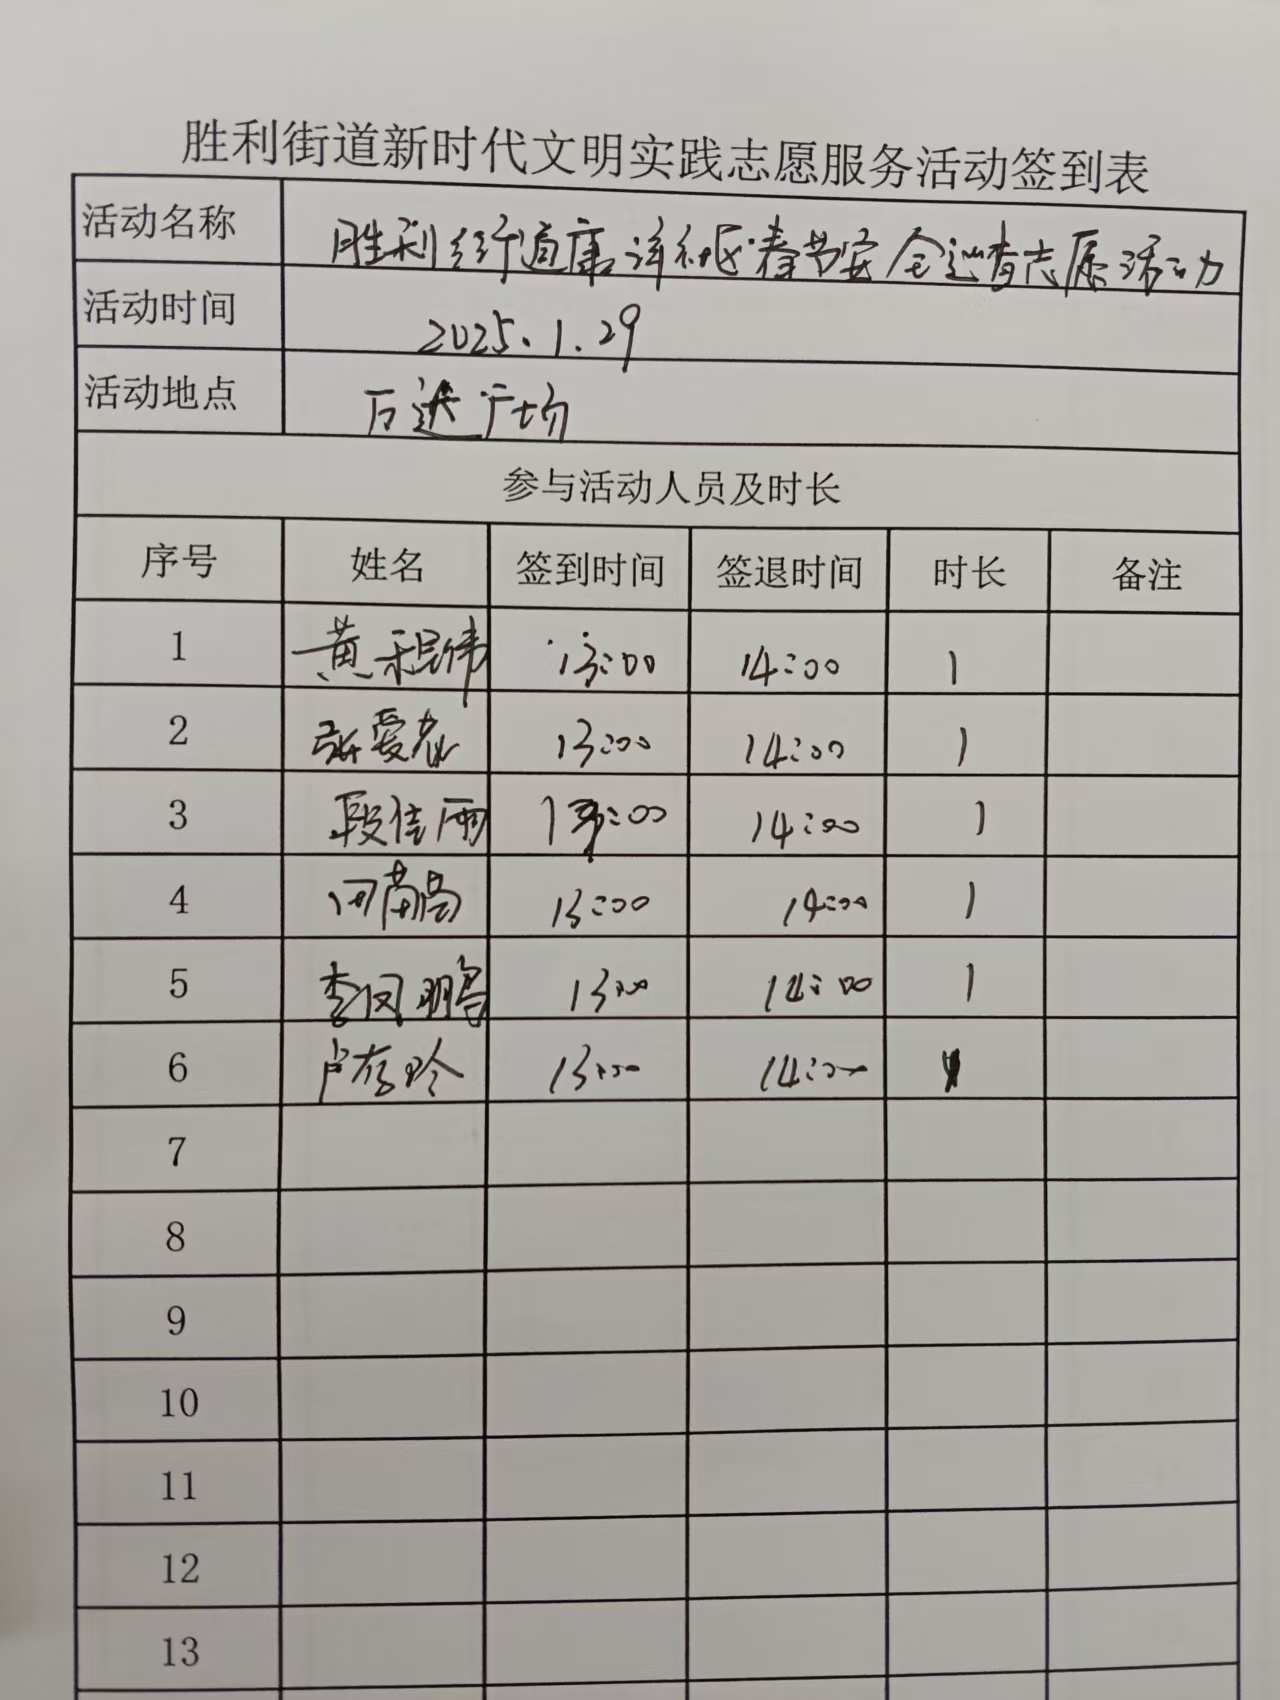 胜利街道新时代文明实践志愿服务活动签到表
活动名称 胜利街道康洋社区春节安全巡查志愿活动
活动时间 2025.1.29
活动地点 广场
参与活动人员及时长
序号 姓名 签到时间 签退时间 时长 备注
1 黄程伟 13:00 14:00 1
2 张爱农 13:00 14:00 1
3 段佳雨 13:00 14:00 1
4 13:00 14:00 1
5 李凤鹏 13:00 14:00 1
6 卢存玲 13:00 14:00 1
7
8
9
10
11
12
13